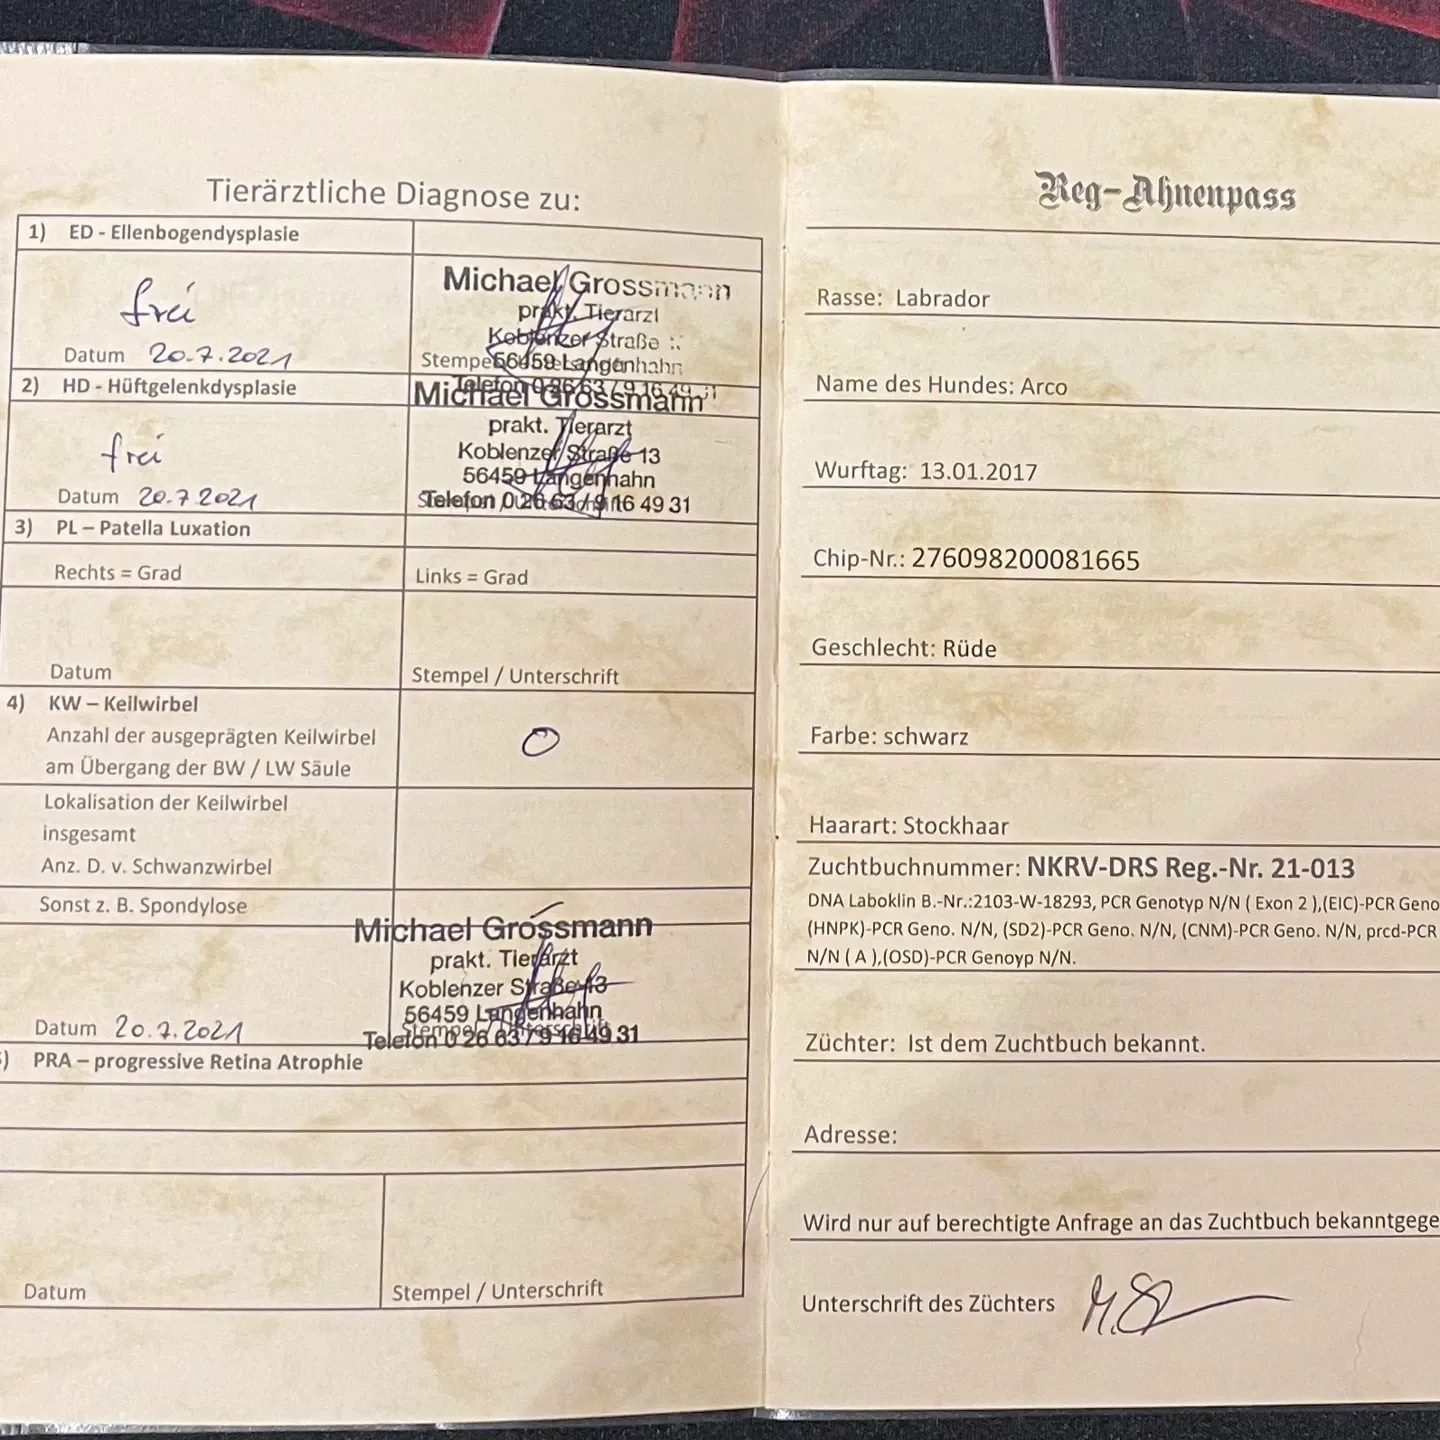 Tierärztliche Diagnose zu:
1) ED - Ellenbogendysplasie
frei
Michael Grossmann
prakt. Tierarzt
Koblenzer Straße
56459 Langenhahn
Datum 20.7.2021
Telefon 0 26 63 / 9 16 49
2) HD - Hüftgelenkdysplasie
frei
Michael Grossmann
prakt. Tierarzt
Koblenzer Straße 13
56459 Langenhahn
Telefon 0 26 63 / 9 16 49 31
Datum 20.7.2021
3) PL – Patella Luxation
Rechts = Grad Links = Grad
Datum Stempel / Unterschrift
4) KW – Keilwirbel
Anzahl der ausgeprägten Keilwirbel
am Übergang der BW / LW Säule
0
Lokalisation der Keilwirbel
insgesamt
Anz. D. v. Schwanzwirbel
Sonst z. B. Spondylose
Michael Grossmann
prakt. Tierarzt
Koblenzer Straße 13
56459 Langenhahn
Telefon 0 26 63 / 9 16 49 31
Datum 20.7.2021
) PRA – progressive Retina Atrophie
Datum Stempel / Unterschrift
Reg-Ahnenpass
Rasse: Labrador
Name des Hundes: Arco
Wurftag: 13.01.2017
Chip-Nr.: 276098200081665
Geschlecht: Rüde
Farbe: schwarz
Haarart: Stockhaar
Zuchtbuchnummer: NKRV-DRS Reg.-Nr. 21-013
DNA Laboklin B.-Nr.:2103-W-18293, PCR Genotyp N/N ( Exon 2 ),(EIC)-PCR Geno
(HNPK)-PCR Geno. N/N, (SD2)-PCR Geno. N/N, (CNM)-PCR Geno. N/N, prcd-PCR
N/N ( A ),(OSD)-PCR Genoyp N/N.
Züchter: Ist dem Zuchtbuch bekannt.
Adresse:
Wird nur auf berechtigte Anfrage an das Zuchtbuch bekanntgege
Unterschrift des Züchters